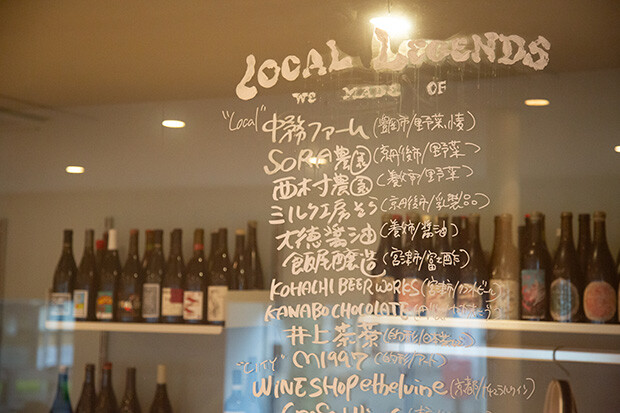 LOCAL LEGENDS
WE MADE OF
"Local" 中務ファーム(豊岡市/野菜、
SORA農園(京丹後市/野菜)
西村農園(養父市/野菜)
ミルク工房そら(京丹後市/乳製品)
大徳醤油(養父市/醤油)
飯尾醸造(宮津市/富士酢)
KOHACHI BEER WORKS(宮津/
KANABO CHOCOLATE
井上茶寮
"CITY" M1997
WINESHOP ethelvine(京都/ナチュラルワイン)